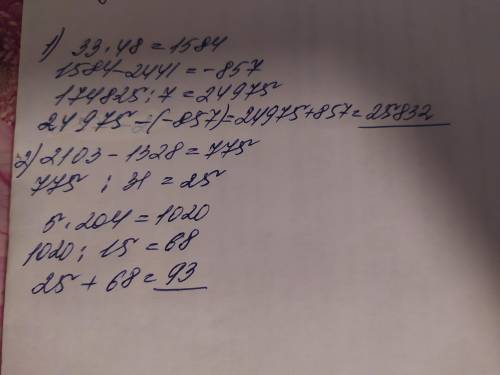 1) 33 · 48 = 1584
1584 - 2441 = -857
174825 : 7 = 24975
24975 - (-857) = 24975 + 857 = 25832
2) 2103 - 1328 = 775
775 : 31 = 25
5 · 204 = 1020
1020 : 15 = 68
25 + 68 = 93